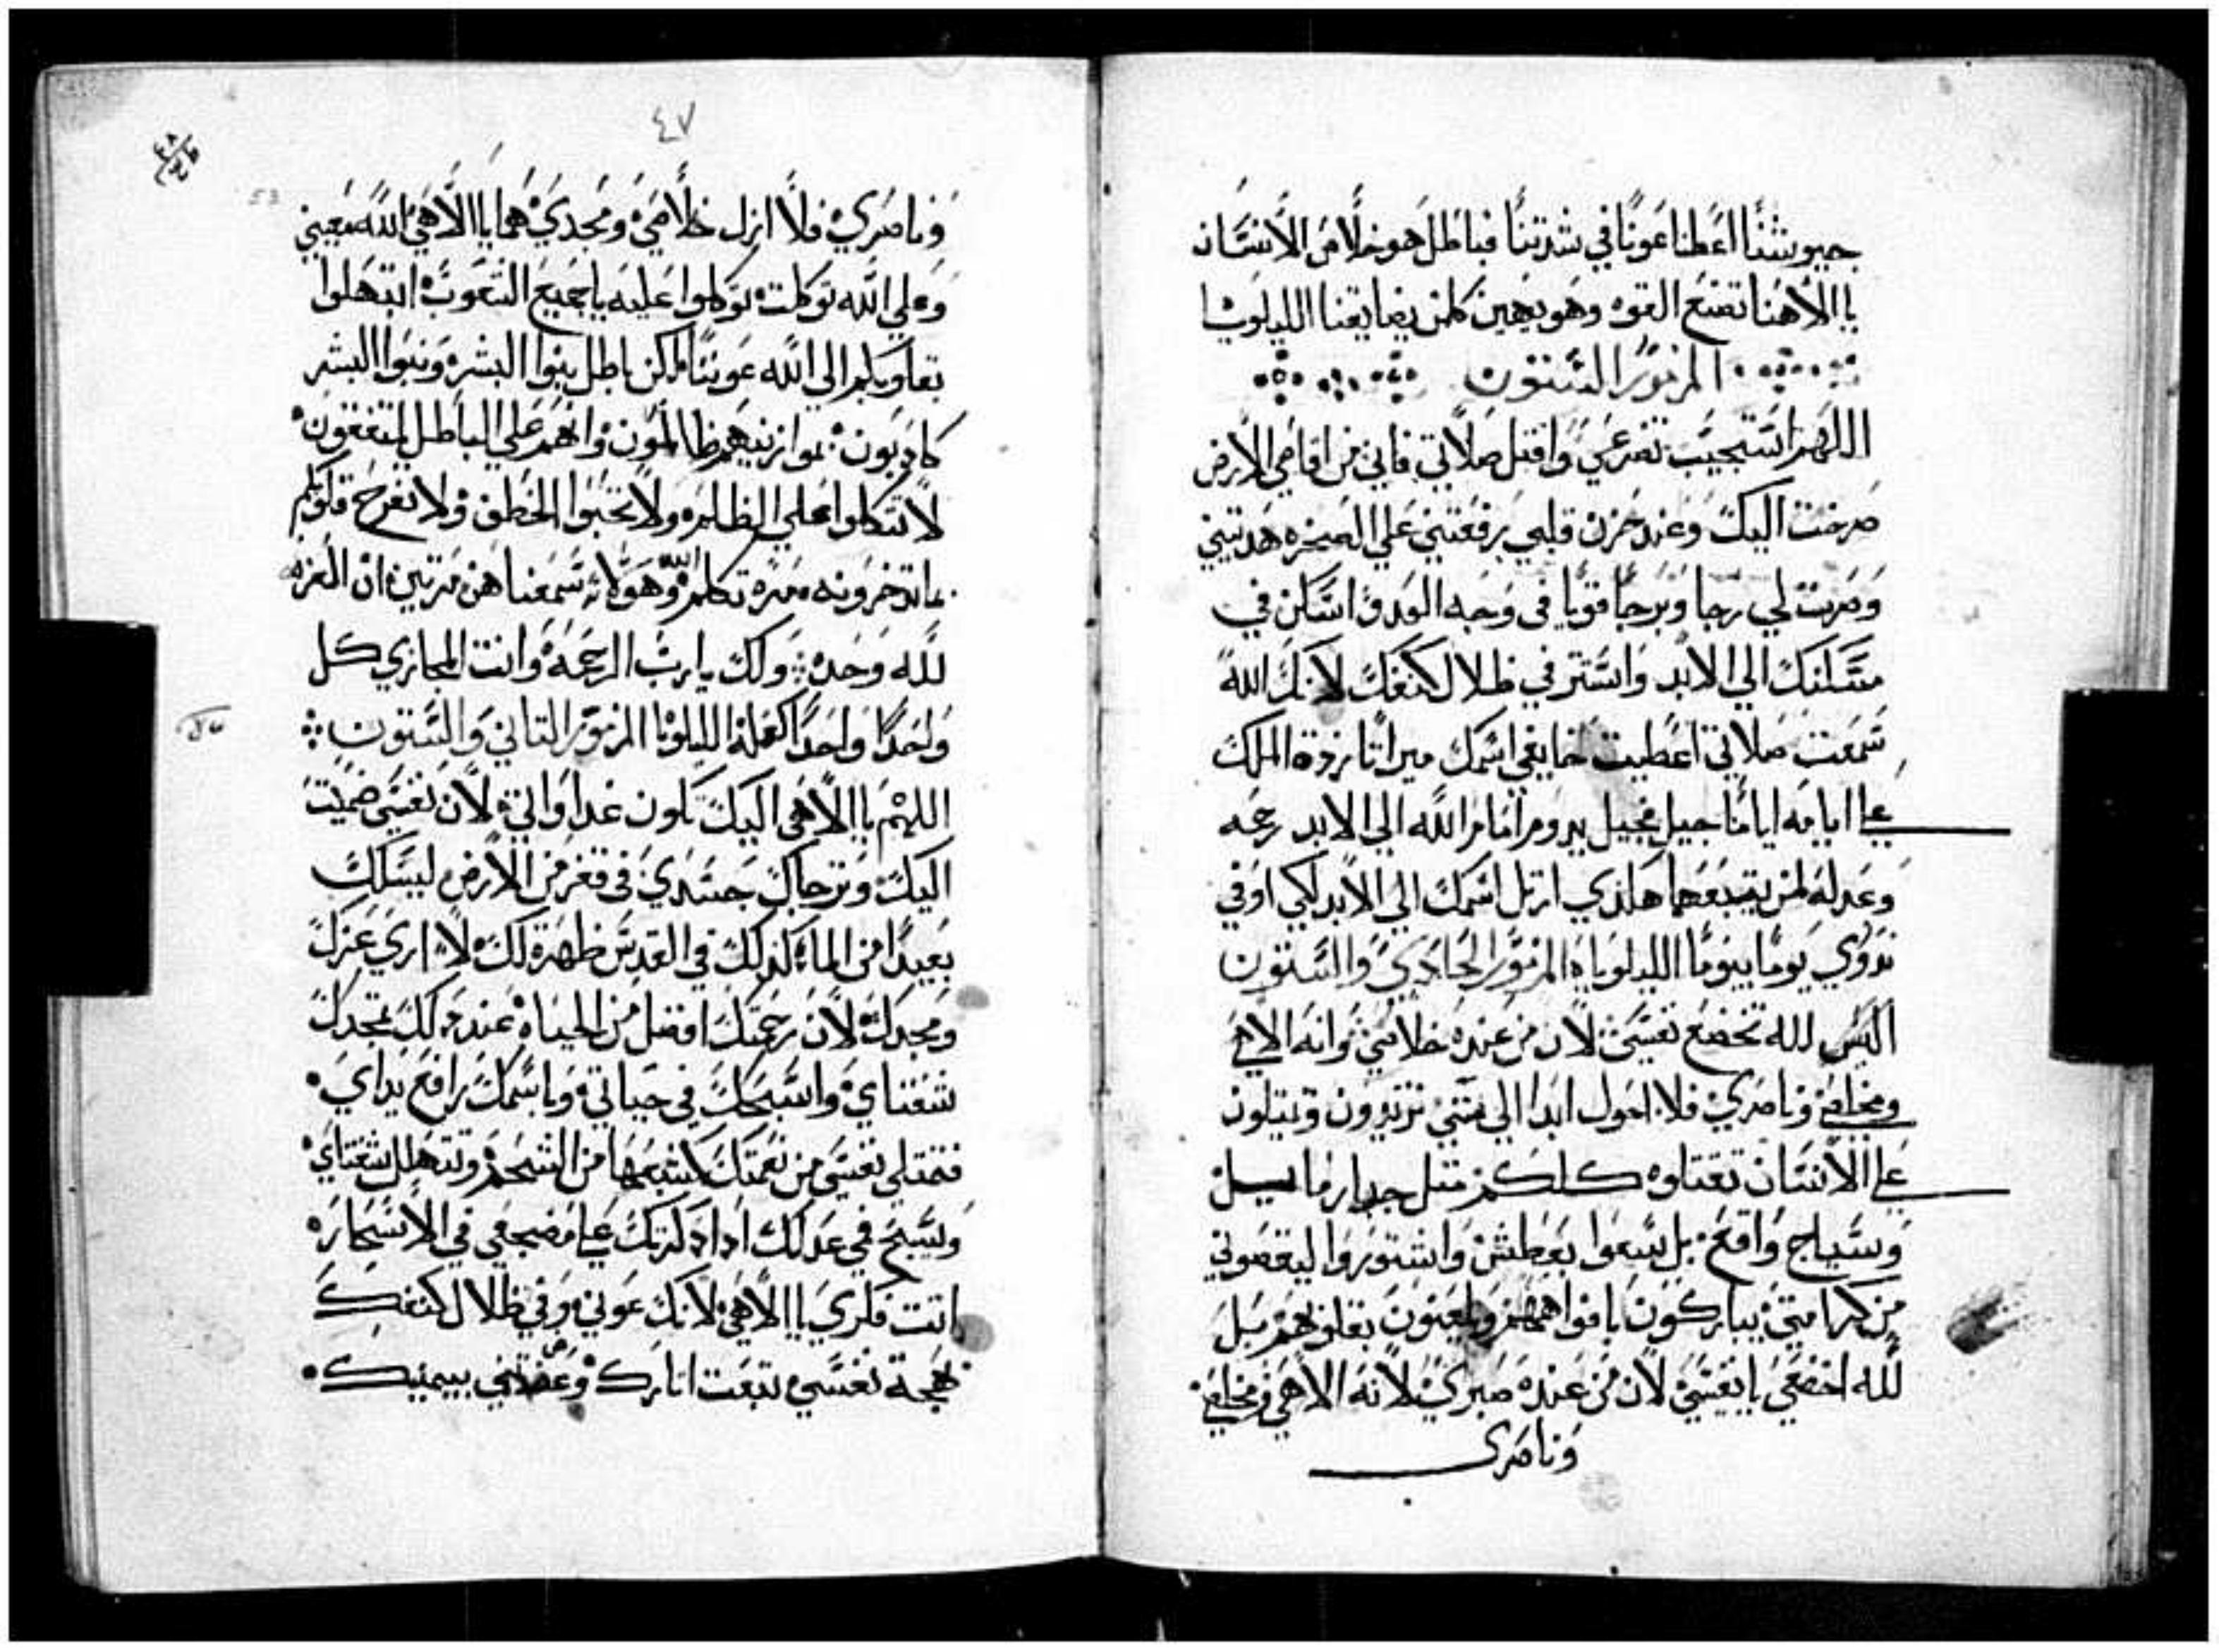 جيوشنا اعطنا عونا في شدتنا فباطل هو خلاص الانسان
يا الاهنا تصنع القوه وهو يهين كلمن يضايقنا الليلويا
المزمور الستون
اللهم استجيب تضرعي واقبل صلاتي فاني من اقاصي الارض
صرخت اليك وعند حزن قلبي رفعتني علي الصخره هديتني
وصرت لي رجا وبرجا قويا في وجه العدو اسكن في
مسكنك الي الابد واستتر في ظلال كنفك لانك الله
سمعت صلاتي اعطيت خايفي اسمك ميراثا زدة الملك
علي ايامه اياما جيل فجيل يدوم امام الله الي الابد رحمه
وعدله لمن يتبعهما هكذي ارتل اسمك الي الابد لكي اوفي
ندوري يوما بيوما الليلويا المزمور الحادي والستون
اليس لله تخضع نفسي لان من عنده خلاصي وانه الاهي
ومخلصي وناصري فلا احول ابدا الي متي تزيدون وتميلون
علي الانسان تقتلوه كلكم متل جدار مايل
وسياج واقع بل سعوا بعطش واشتوروا ليقصوني
من كرامتي يباركون بافواههم ويلعنون بقلوبهم بل
لله اخضعي يا نفسي لان من عنده صبري لانه الاهي ومخلصي
وناصري
٤٧
53
وناصري فلا ازل خلاصي ومجدي هما يا الاهي الله معيني
وعلي الله توكلت توكلوا عليه يا جميع الشعوب ابتهلوا
بقلوبكم الي الله عوننا لكن باطل بنوا البشر وبنوا البشر
كادبون موازينهم ظالمون وانهم علي الباطل متفقون
لا تتكلوا علي الظلم ولا تحبوا الخطف ولا تفرح قلوبكم
بما تدخرونه مره تكلم الله وهولاء سمعنا هن مرتين ان العزه
لله وحده ولك يا رب الرحمه وانت المجازي كل
واحدا واحدا كعمله الليلويا المزمور التاني والستون
اللهم يا الاهي اليك تكون غداواتي لان نفسي ضميت
اليك وترجاك جسدي في قفر من الارض ليسلك
بعيدا من الماء كذلك في القدس ظهرة لك لاري عزك
ومجدك لان رحمتك افضل من الحياه عند ذلك تمجدك
شفتاي واسبحك في حياتي وباسمك رافع يداي
فتمتلي نفسي من نعمتك كشبعها من الشحم وتتهلل شفتاي
ويسبح في عدلك ادا دكرتك علي مضجعي في الاسحاره
انت فكري يا الاهي لانك عوني وفي ظلال كنفك
بهجة نفسي تبعت اتارك وعضدتني بيمينك